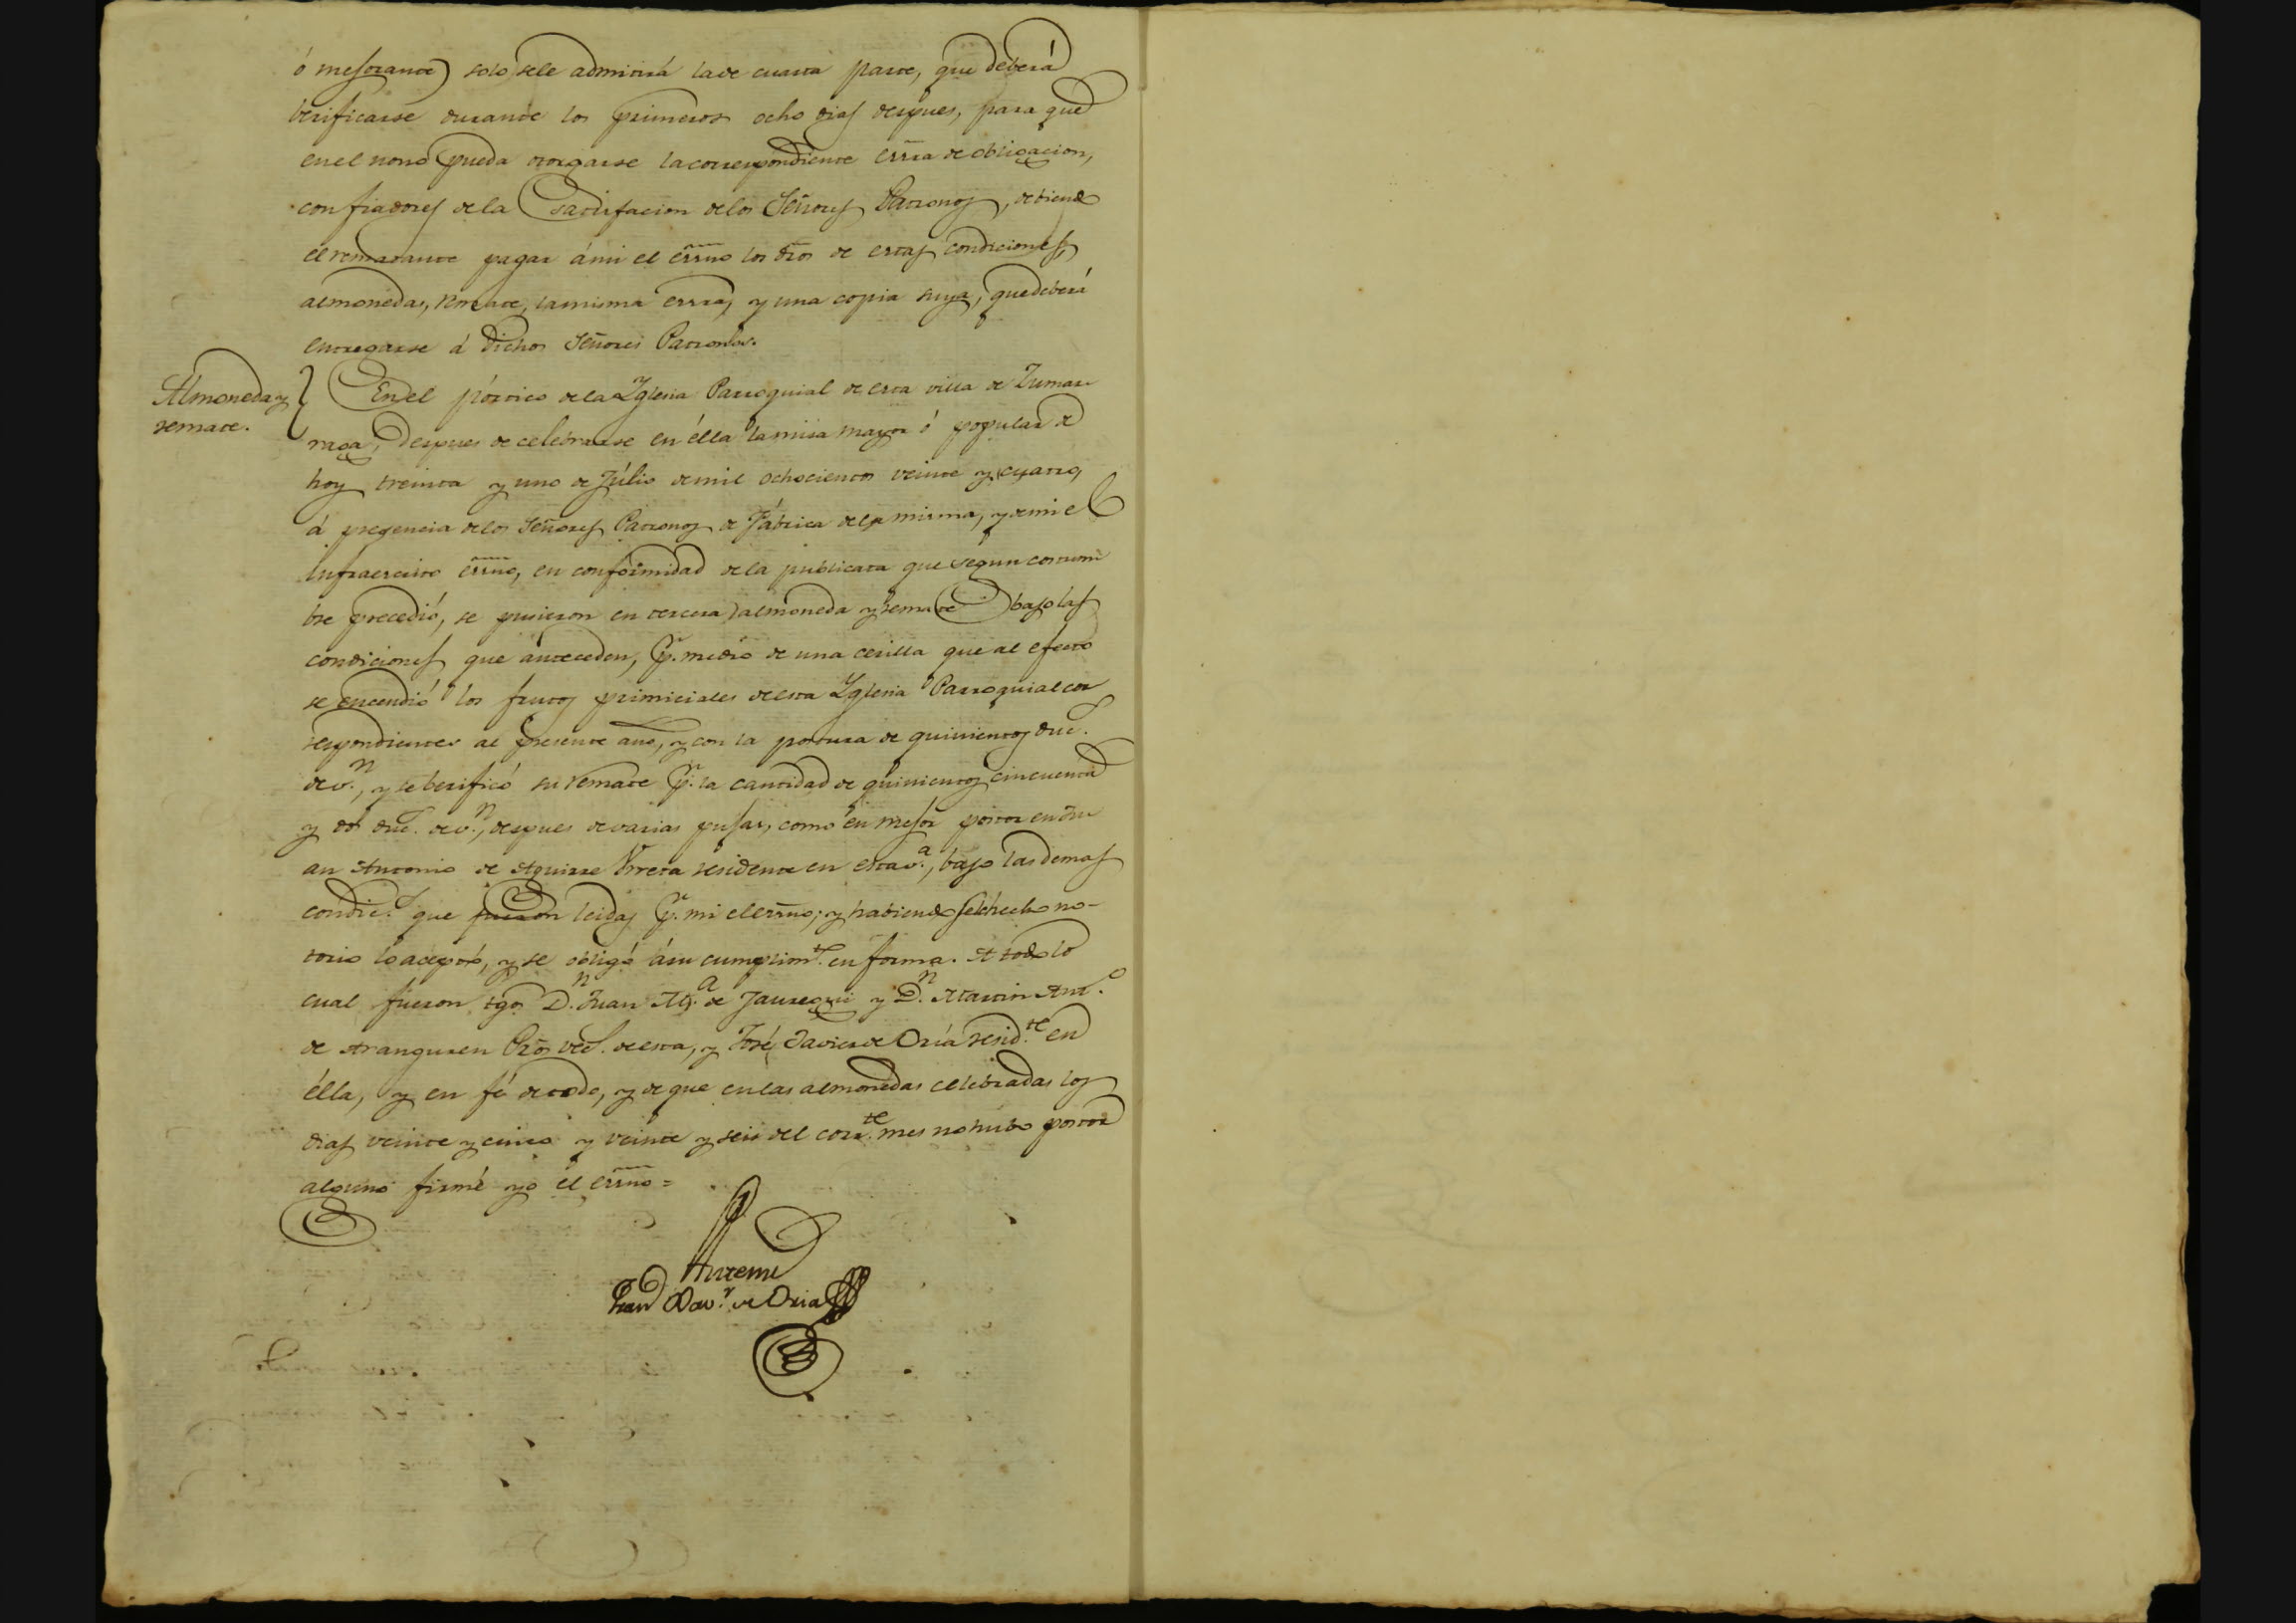 ó mejorante) solo sele admitirá lade cuarta parte, que deberá
berificarse durante los primeros ocho dias despues, para que
enel nono pueda otorgarse lacorrespondiente essra de obligacion,
con fiadores de la satisfacion delos Señores Patronos, debiendo
el rematante pagar ámi el essno los dros de estas condiciones,
almonedas, remate, lamisma essra, y una copia suya, quedeberá
entregarse á dichos Señores Patronos.
Almoneda y
remate.
Enel pórtico dela Yglesia Parroquial de esta villa de Zumar
raga, despues de celebrarse en élla lamisa mayor ó popular de
hoy treinta y uno de Júlio demil ochocientos veinte y cuatro,
á presencia delos Señores Patronos de Fábrica dela misma, y demi el
infraescrito essno, en conformidad dela publicata que segun costum
bre precedió, se pusieron en tercera almoneda y remate bajo las
condiciones que anteceden, pr. medio de una cerilla que al efecto
se encendió los frutos primiciales deesta Yglesia Parroquial cor
respondientes al presente año, y con la postura de quinientos duc.s
de v.n, y se berificó su remate pr. la cantidad de quinientos cincuenta
y dos duc.s de v.n, despues devarias pujas, como en mejor postor en Ju
an Antonio de Aguirre Urreta residente en esta v.a, bajo las demas
condic.s que fueron leidas pr. mi el essno; y habiendosele hecho no-
torio lo aceptó, y se obligó ásu cumplim.to en forma. A todo lo
cual fueron tgos D.n Juan Ig.a de Jauregui y D.n Martin Ant.o
de Aranguren Pros vec.s deesta, y José Javier de Oria resid.te en
élla, y en fé detodo, y de que enlas almonedas celebradas los
dias veinte y cinco y veinte y seis del corr.te mes no hubo postor
alguno firmé yo el essno =
Antemi
Juan Xav.r de Oria